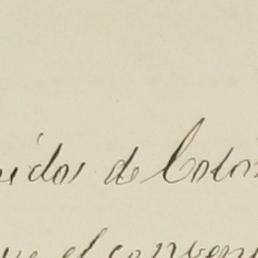 nidos de Colom
ue el conveni